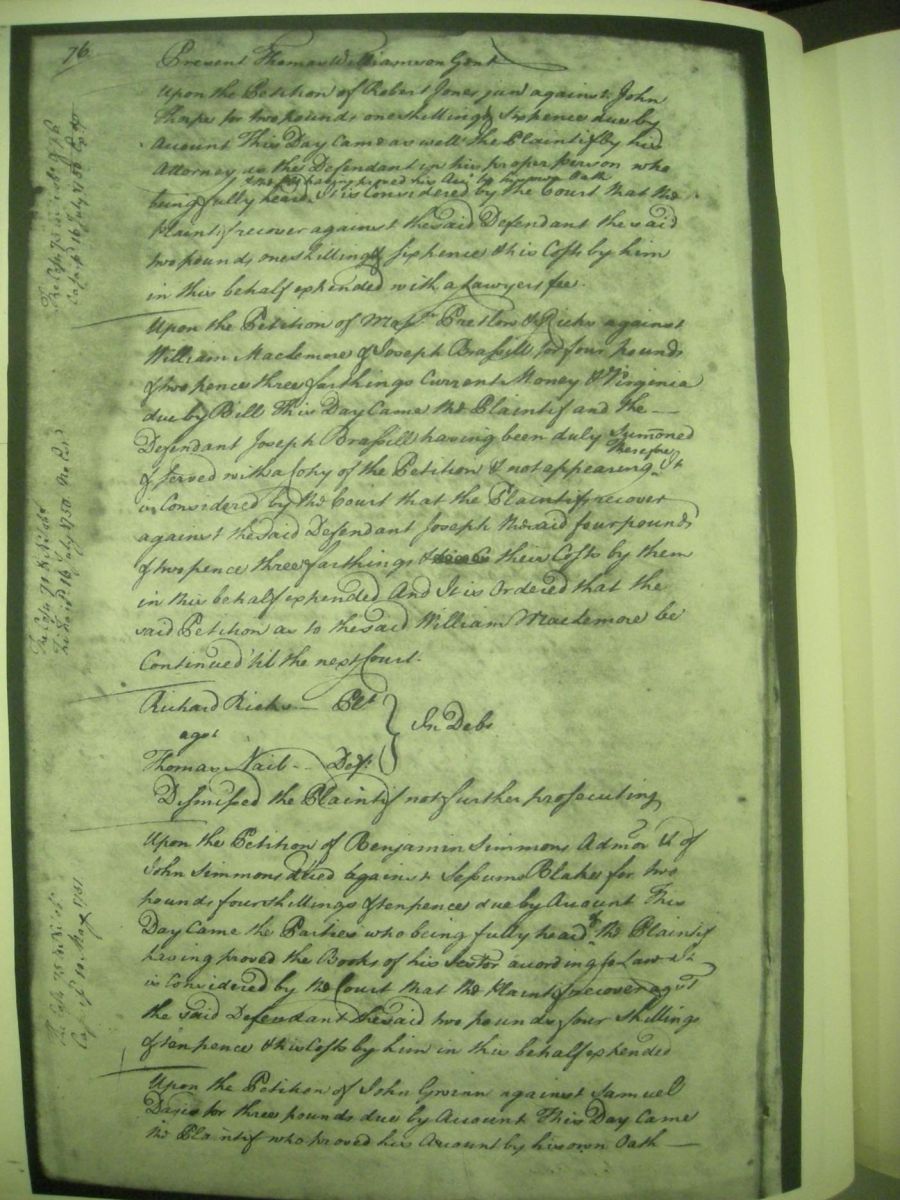 76
Present Thomas Williamson Gent
Upon the Petition of Robert Jones junr against John
Thorpe for two pounds one shilling & Sixpence due by
Account This Day Came as well the Plaintif by his
Attorney as the Defendant in his proper person who
& the pltf having proved his Acct by his own Oath
being fully heard It is Considered by the Court that the
Plaintif recover against the said Defendant the said
two pounds one shilling & Sixpence & his Costs by him
in this behalf expended with a Lawyers fee.
Upon the Petition of Messrs Preston & Ricks against
William Maclemore & Joseph Brassill for four pounds
& two pence three farthings Current Money of Virginia
due by Bill This Day Came the Plaintif and the
Defendant Joseph Brassill having been duly Summoned
& Served with a Copy of the Petition & not appearing Therefore It
is Considered by the Court that the Plaintif recover
against the said Defendant Joseph the said four pounds
& two pence three farthings & their Costs by them
in this behalf expended And It is Ordered that the
said Petition as to the said William Maclemore be
Continued 'til the next Court.
Richard Ricks Plt
agst
In Debt
Thomas Nail Deft
Dismissed the Plaintif not further prosecuting
Upon the Petition of Benjamin Simmons Admor &c of
John Simmons dced against Sessums Blake for two
pounds four shillings & tenpence due by Account This
Day Came the Parties who being fully heard & the Plaintif
having proved the Books of his Testor according to Law It
is Considered by the Court that the Plaintif recover agst
the said Defendant the said two pounds four Shillings
& tenpence & his Costs by him in this behalf expended
Upon the Petition of John Gwinn against Samuel
Davis for three pounds due by Account This Day Came
the Plaintif who proved his Account by his own Oath
16 July 1750
16 July 1750
10 May 1751